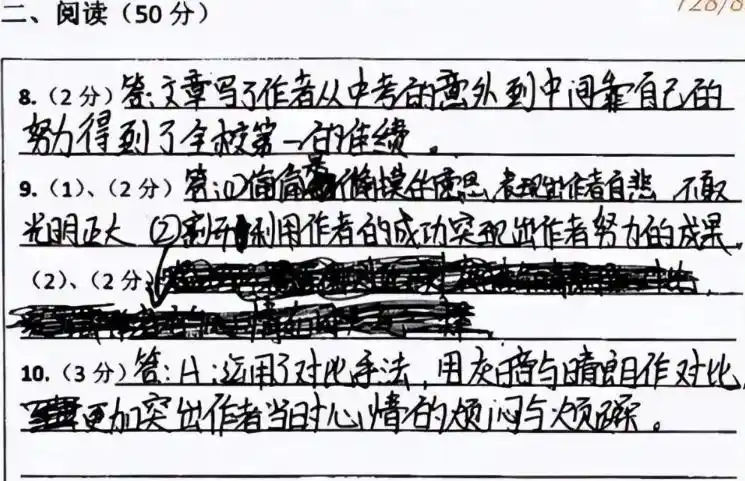 二、阅读（50 分）
128/8
8.（2 分）答:文章写了作者从中考的意外到中间靠自己的
努力得到了全校第一的佳绩。
9.（1）、（2 分）答:(1)偷偷 的意思,表现出作者自悲 不取
光明正大 (2) 利用作者的成功突现出作者努力的成果。
（2）、（2 分）
10.（3 分）答:A:运用了对比手法,用灰暗与晴朗作对比,
更加突出作者当时心情的烦闷与烦躁。